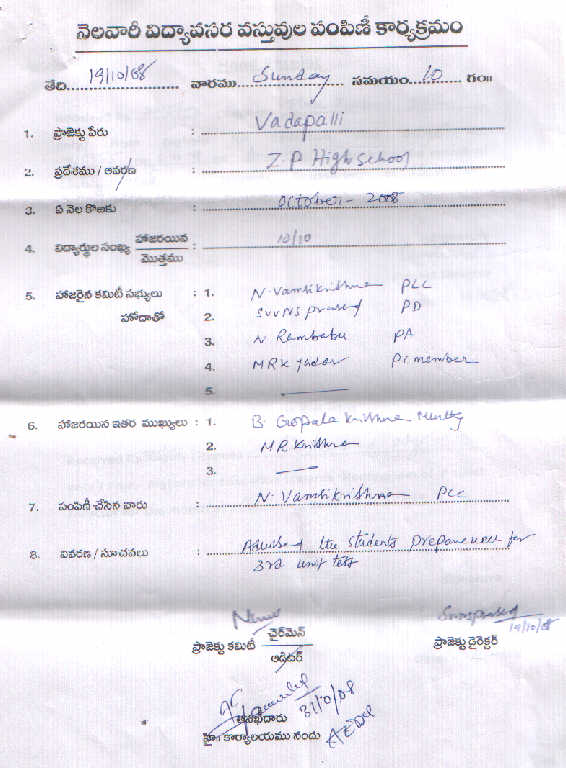 నెలవారీ విద్యావసర వస్తువుల పంపిణీ కార్యక్రమం
తేది. 19/10/08 వారము Sunday సమయం. 10 గం॥
1. ప్రాజెక్టు పేరు : Vadapalli
2. ప్రదేశము / ఆవరణ : Z.P High school
3. ఏ నెల కొఱకు : october - 2008
4. విద్యార్థుల సంఖ్య హాజరయిన / మొత్తము : 10/10
5. హాజరైన కమిటీ సభ్యులు : 1. N. Vamsikrishna PLC
హోదాతో 2. SVVNS prasad PD
3. N Rambabu PA
4. MRK Yadav P.C member
5. —
6. హాజరయిన ఇతర ముఖ్యులు : 1. B. Gopala Krishna Murthy
2. M R Krishna
3. —
7. పంపిణీ చేసిన వారు : N. Vamsikrishna PLC
8. వివరణ / సూచనలు : Advised the students prepare well for
3rd unit tets
చైర్‌మెన్
ప్రాజెక్టు కమిటీ
ఆడిటర్
19/10/08
ప్రాజెక్టు డైరెక్టర్
31/10/08
కార్యాలయము నందు AEDP